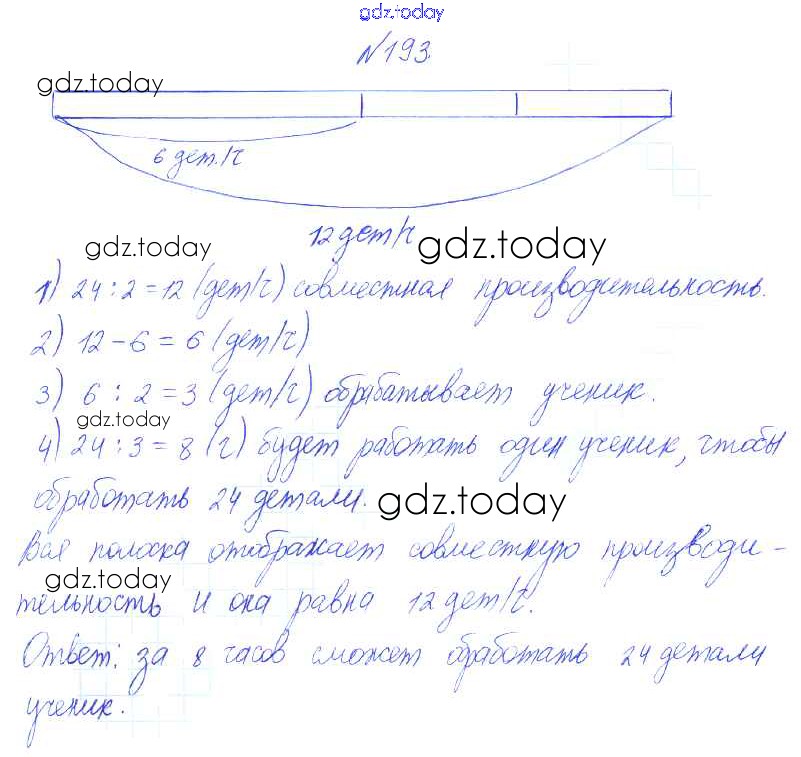 gdz.today
№193.
gdz.today
6 дет./ч
12 дет/ч gdz.today
gdz.today
1) 24 : 2 = 12 (дет/ч) совместная производительность.
2) 12 - 6 = 6 (дет/ч)
3) 6 : 2 = 3 (дет/ч) обрабатывает ученик.
gdz.today
4) 24 : 3 = 8 (ч) будет работать один ученик, чтобы
обработать 24 детали. gdz.today
Вся полоска отображает совместную производи-
gdz.today
тельность и она равна 12 дет/ч.
Ответ: за 8 часов сможет обработать 24 детали
ученик.